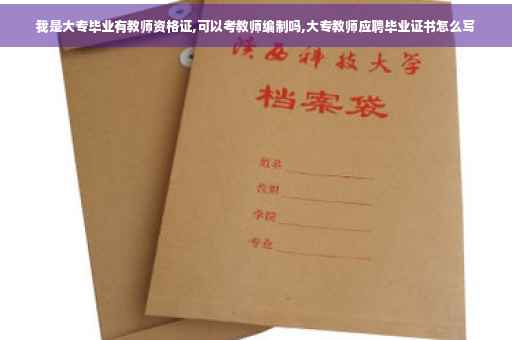 我是大专毕业有教师资格证,可以考教师编制吗,大专教师应聘毕业证书怎么写
陕西科技大学
档案袋
姓名
班级
学院
专业